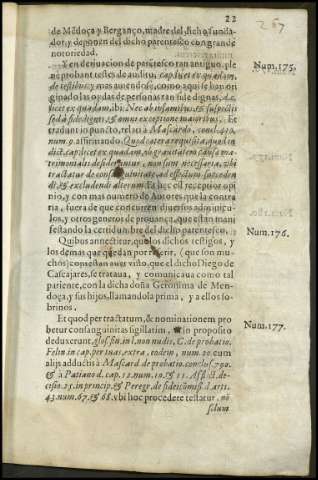 22
267
de Mẽdoça y Berganço, madre del dicho funda-
dor, y deponen del dicho parentesco con grande
notoriedad.
Y en deiuacion de parẽtesco tan antiguo, ple
nè probant testes de auditu, cap. licet ex quadam,
de testibus: y mas auiendose, como aqui se han ori
ginado las oydas de personas tan fide dignas, d. c.
licet ex quadam, ibi, Nec ab infamibus, & suspectis
sed à fide dignis, & omni exceptione maioribus. Et
tradunt in puncto, relati à Mascardo, concl. 410.
num. 9. affirmando, Quod cætera requisita, quæ in
dict. cap. licet ex quadam, ob grauitatem causæ ma-
trimonialis desiderantur, non sunt necessaria, vbi
tractatur de consanguinitate, ad effectum succeden
di, & excludendi alterum. Et hæc est receptior opi
nio, y con mas numero de Autores que la contra
ria, fuera de que concurren diuersos adminicu-
los, y otros generos de prouança, que estan mani
festando la certidumbre del dicho parentesco.
Quibus annectitur, que los dichos testigos, y
los demas que quedan por referir, (que son mu-
chos) contestan que vnio, que el dicho Diego de
Cascajares, se trataua, y comunicaua como tal
pariente, con la dicha doña Geronima de Men-
doça, y sus hijos, llamandola prima, y a ellos so-
brinos.
Et quod per tractatum, & nominationem pro
betur consanguinitas sigillatim, in proposito
deduxerunt, glos. fin. in l. non nudis, C. de probatio.
Felin. in cap. per tuas, extra, eodem, num. 20. cum
alijs adductis à Mascard. de probatio. conclus. 790.
& à Patiano d. cap. 12. num. 10. & 11. Afflict. de-
cisio. 25. in princip. & Peregr. de fideicõmiss. d. arti.
43. num. 67. & 68. vbi hoc procedere testatur, nõ
solum
Num. 175.
Num. 176.
Num. 177.